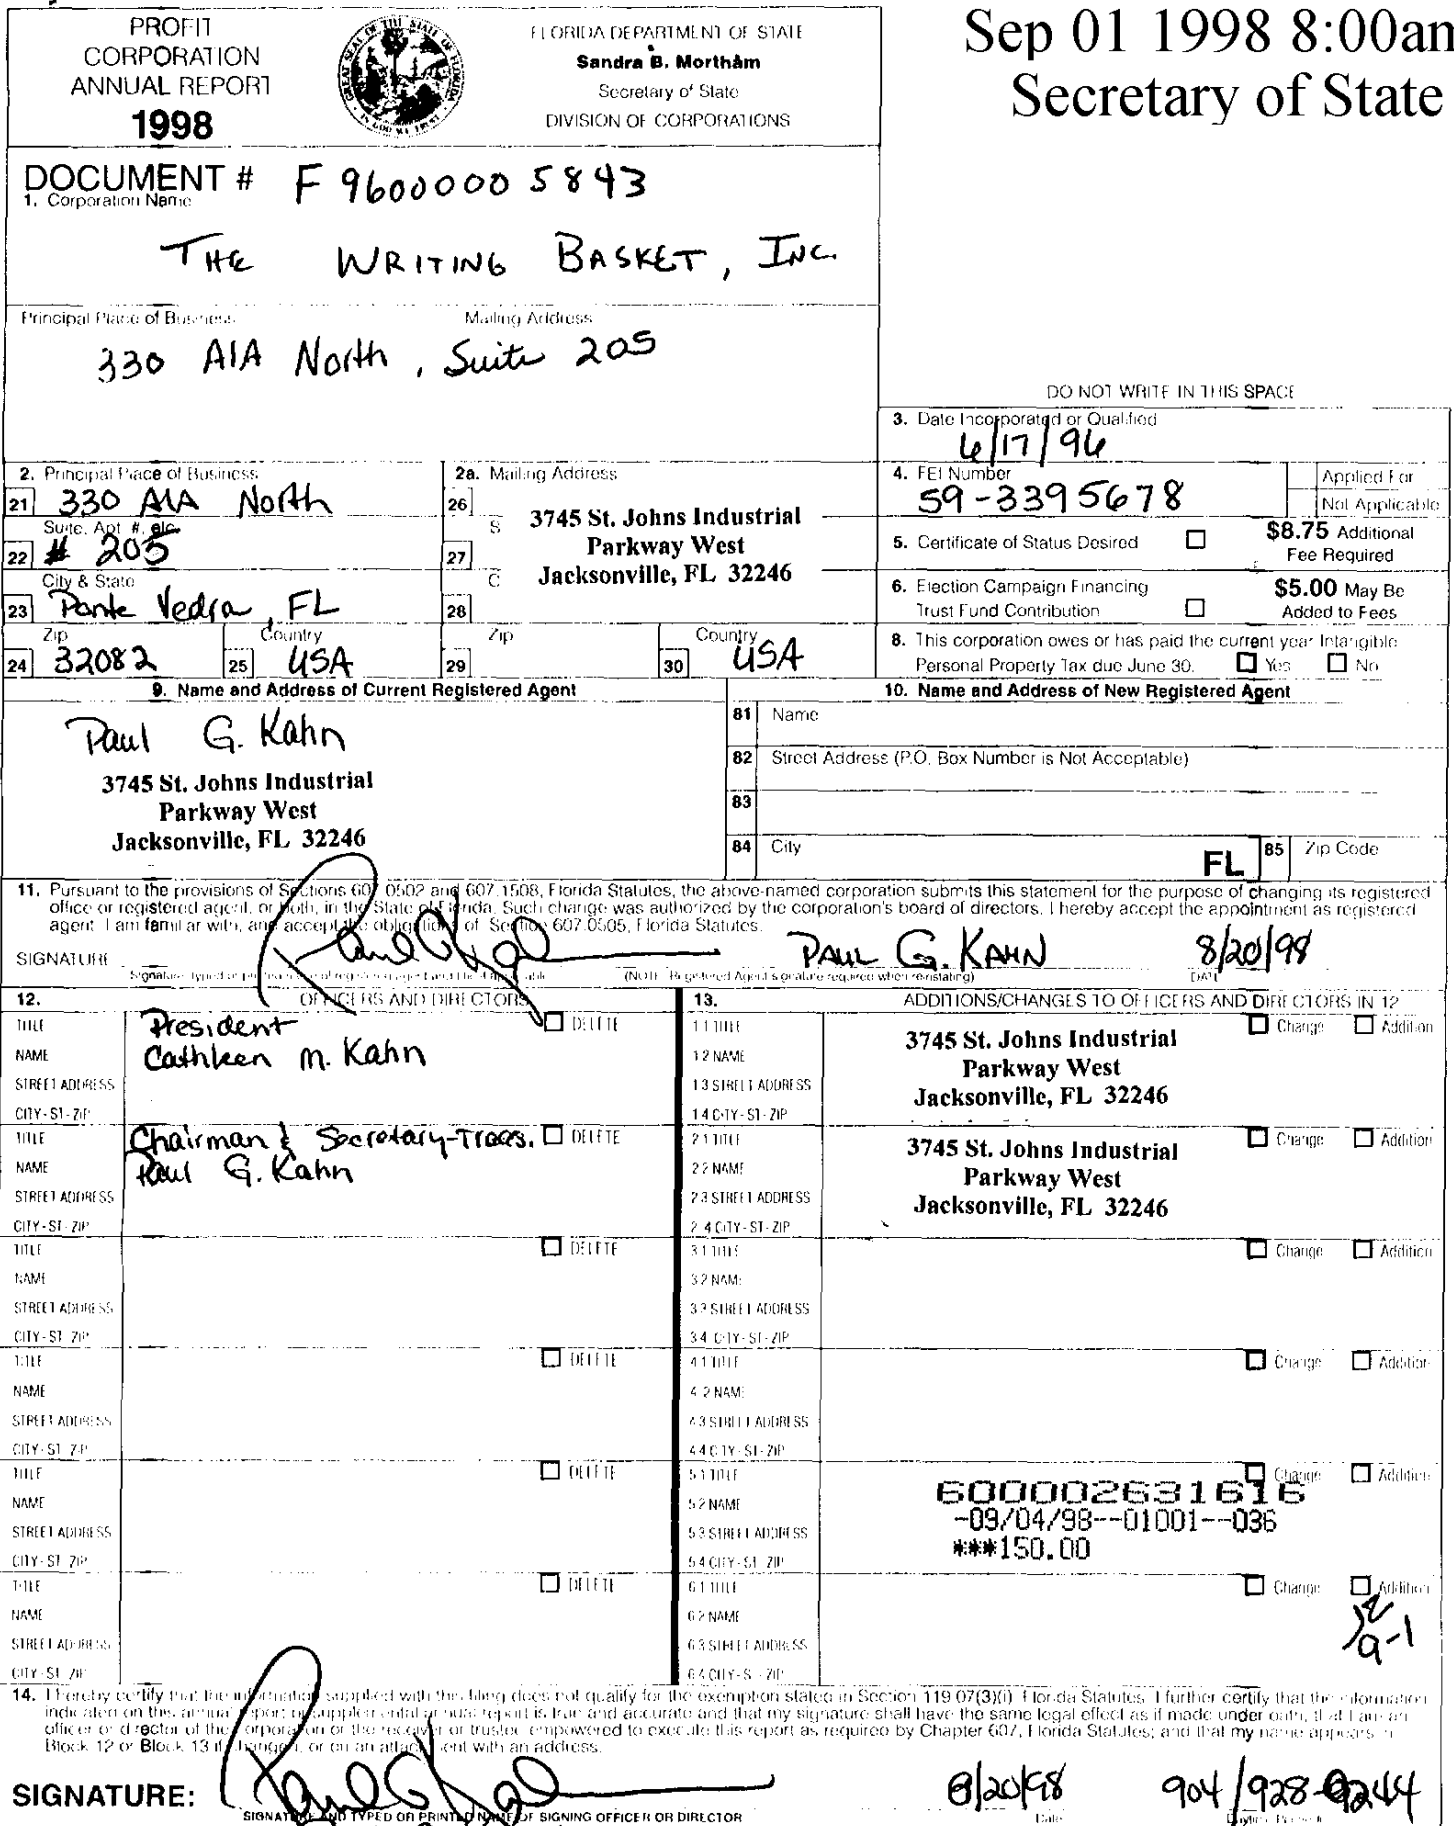 PROFIT
CORPORATION
ANNUAL REPORT
1998
FLORIDA DEPARTMENT OF STATE
Sandra B. Mortham
Secretary of State
DIVISION OF CORPORATIONS
Sep 01 1998 8:00am
Secretary of State
DOCUMENT # F96000005843
1. Corporation Name
THE WRITING BASKET, INC.
Principal Place of Business Mailing Address
330 A1A North, Suite 205
DO NOT WRITE IN THIS SPACE
3. Date Incorporated or Qualified
6/17/96
2. Principal Place of Business
21 330 A1A North
Suite, Apt. #, etc.
22 # 205
City & State
23 Ponte Vedra, FL
Zip Country
24 32082 25 USA
2a. Mailing Address
26
27
28
3745 St. Johns Industrial
Parkway West
Jacksonville, FL 32246
Zip Country
29 30 USA
4. FEI Number
59-3395678
Applied For
Not Applicable
5. Certificate of Status Desired
$8.75 Additional
Fee Required
6. Election Campaign Financing
Trust Fund Contribution
$5.00 May Be
Added to Fees
8. This corporation owes or has paid the current year Intangible
Personal Property Tax due June 30. Yes No
9. Name and Address of Current Registered Agent
Paul G. Kahn
3745 St. Johns Industrial
Parkway West
Jacksonville, FL 32246
10. Name and Address of New Registered Agent
81 Name
82 Street Address (P.O. Box Number is Not Acceptable)
83
84 City FL 85 Zip Code
11. Pursuant to the provisions of Sections 607.0502 and 607.1508, Florida Statutes, the above-named corporation submits this statement for the purpose of changing its registered
office or registered agent, or both, in the State of Florida. Such change was authorized by the corporation's board of directors. I hereby accept the appointment as registered
agent. I am familiar with, and accept the obligations of Section 607.0505, Florida Statutes.
SIGNATURE PAUL G. KAHN 8/20/98
Signature, typed or printed name of registered agent and title if applicable (NOTE: Registered Agent signature required when reinstating) DATE
12. OFFICERS AND DIRECTORS
TITLE President DELETE
NAME Cathleen M. Kahn
STREET ADDRESS
CITY-ST-ZIP
TITLE Chairman & Secretary-Treas. DELETE
NAME Paul G. Kahn
STREET ADDRESS
CITY-ST-ZIP
TITLE DELETE
NAME
STREET ADDRESS
CITY-ST-ZIP
TITLE DELETE
NAME
STREET ADDRESS
CITY-ST-ZIP
TITLE DELETE
NAME
STREET ADDRESS
CITY-ST-ZIP
TITLE DELETE
NAME
STREET ADDRESS
CITY-ST-ZIP
13. ADDITIONS/CHANGES TO OFFICERS AND DIRECTORS IN 12
1.1 TITLE Change Addition
1.2 NAME
1.3 STREET ADDRESS
1.4 CITY-ST-ZIP
3745 St. Johns Industrial
Parkway West
Jacksonville, FL 32246
2.1 TITLE Change Addition
2.2 NAME
2.3 STREET ADDRESS
2.4 CITY-ST-ZIP
3745 St. Johns Industrial
Parkway West
Jacksonville, FL 32246
3.1 TITLE Change Addition
3.2 NAME
3.3 STREET ADDRESS
3.4 CITY-ST-ZIP
4.1 TITLE Change Addition
4.2 NAME
4.3 STREET ADDRESS
4.4 CITY-ST-ZIP
5.1 TITLE Change Addition
5.2 NAME
5.3 STREET ADDRESS
5.4 CITY-ST-ZIP
600002631616
-09/04/98--01001--036
***150.00
6.1 TITLE Change Addition
6.2 NAME
6.3 STREET ADDRESS
6.4 CITY-ST-ZIP
9-1
14. I hereby certify that the information supplied with this filing does not qualify for the exemption stated in Section 119.07(3)(i), Florida Statutes. I further certify that the information
indicated on this annual report or supplemental annual report is true and accurate and that my signature shall have the same legal effect as if made under oath; that I am an
officer or director of the corporation or the receiver or trustee empowered to execute this report as required by Chapter 607, Florida Statutes; and that my name appears in
Block 12 or Block 13 if changed, or on an attachment with an address.
SIGNATURE: 8/20/98 904/928-9244
SIGNATURE AND TYPED OR PRINTED NAME OF SIGNING OFFICER OR DIRECTOR Date Daytime Phone #